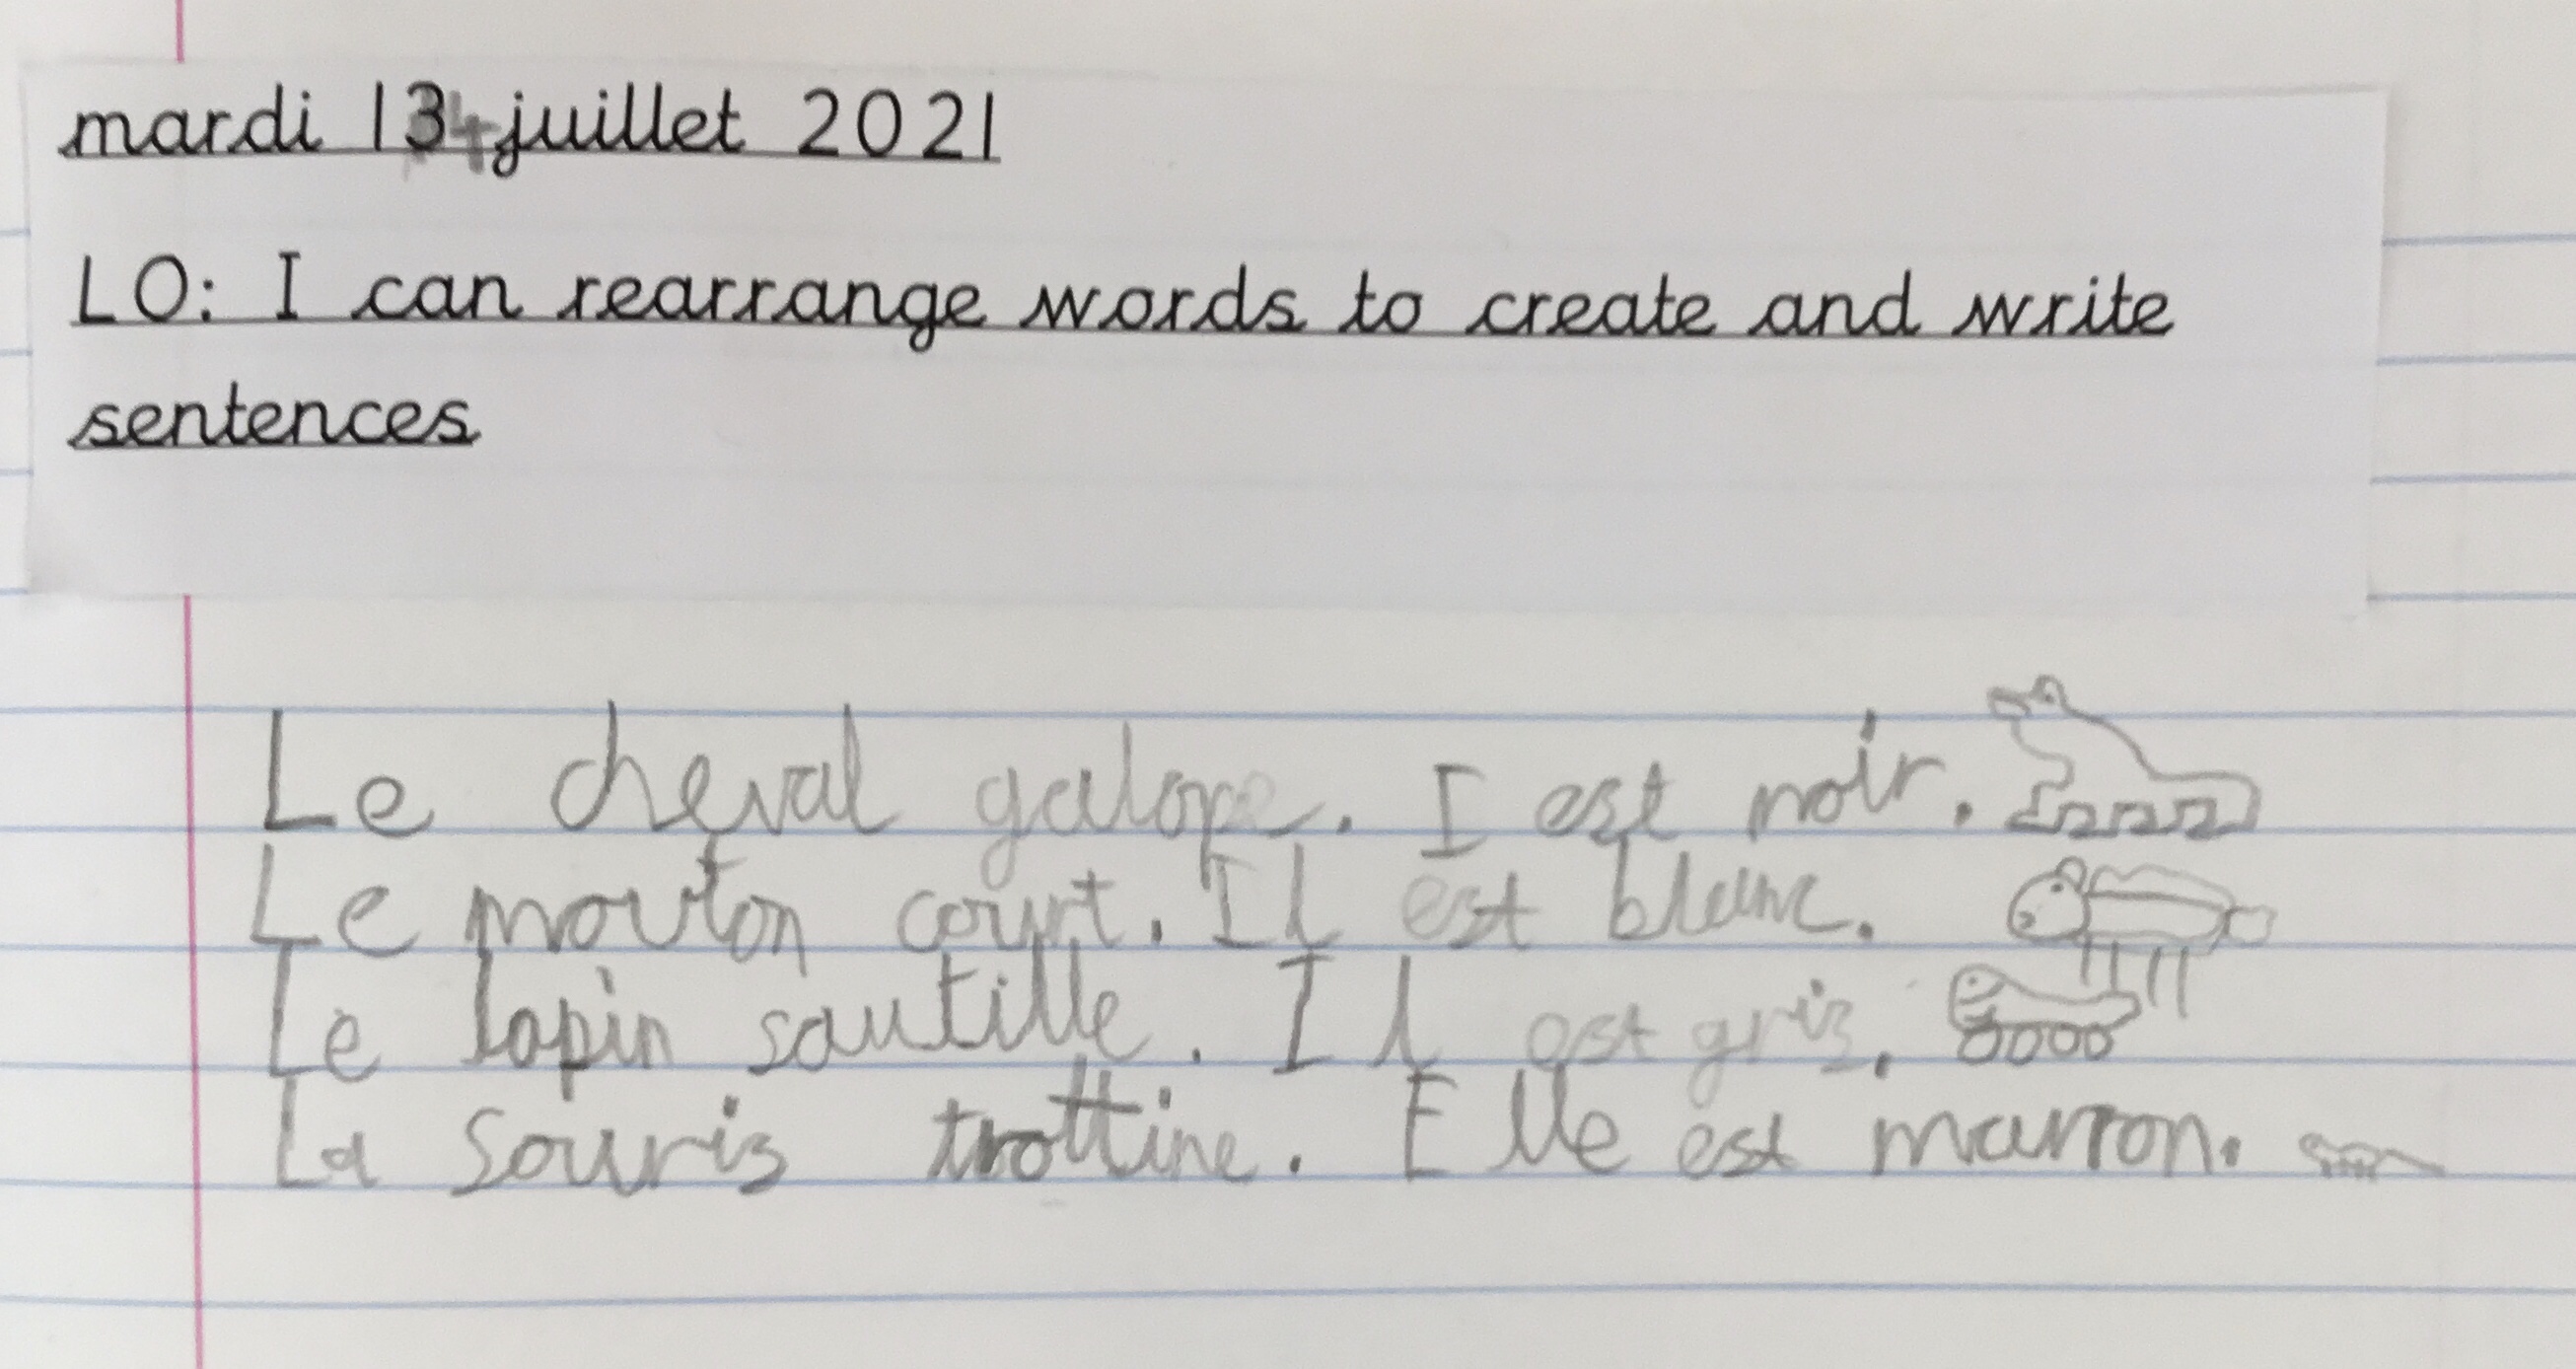 mardi 134 juillet 2021
LO: I can rearrange words to create and write
sentences
Le cheval galope. I est noir.
Le mouton court. Il est blanc.
Le lapin sautille. Il est gris.
La souris trottine. Elle est marron.